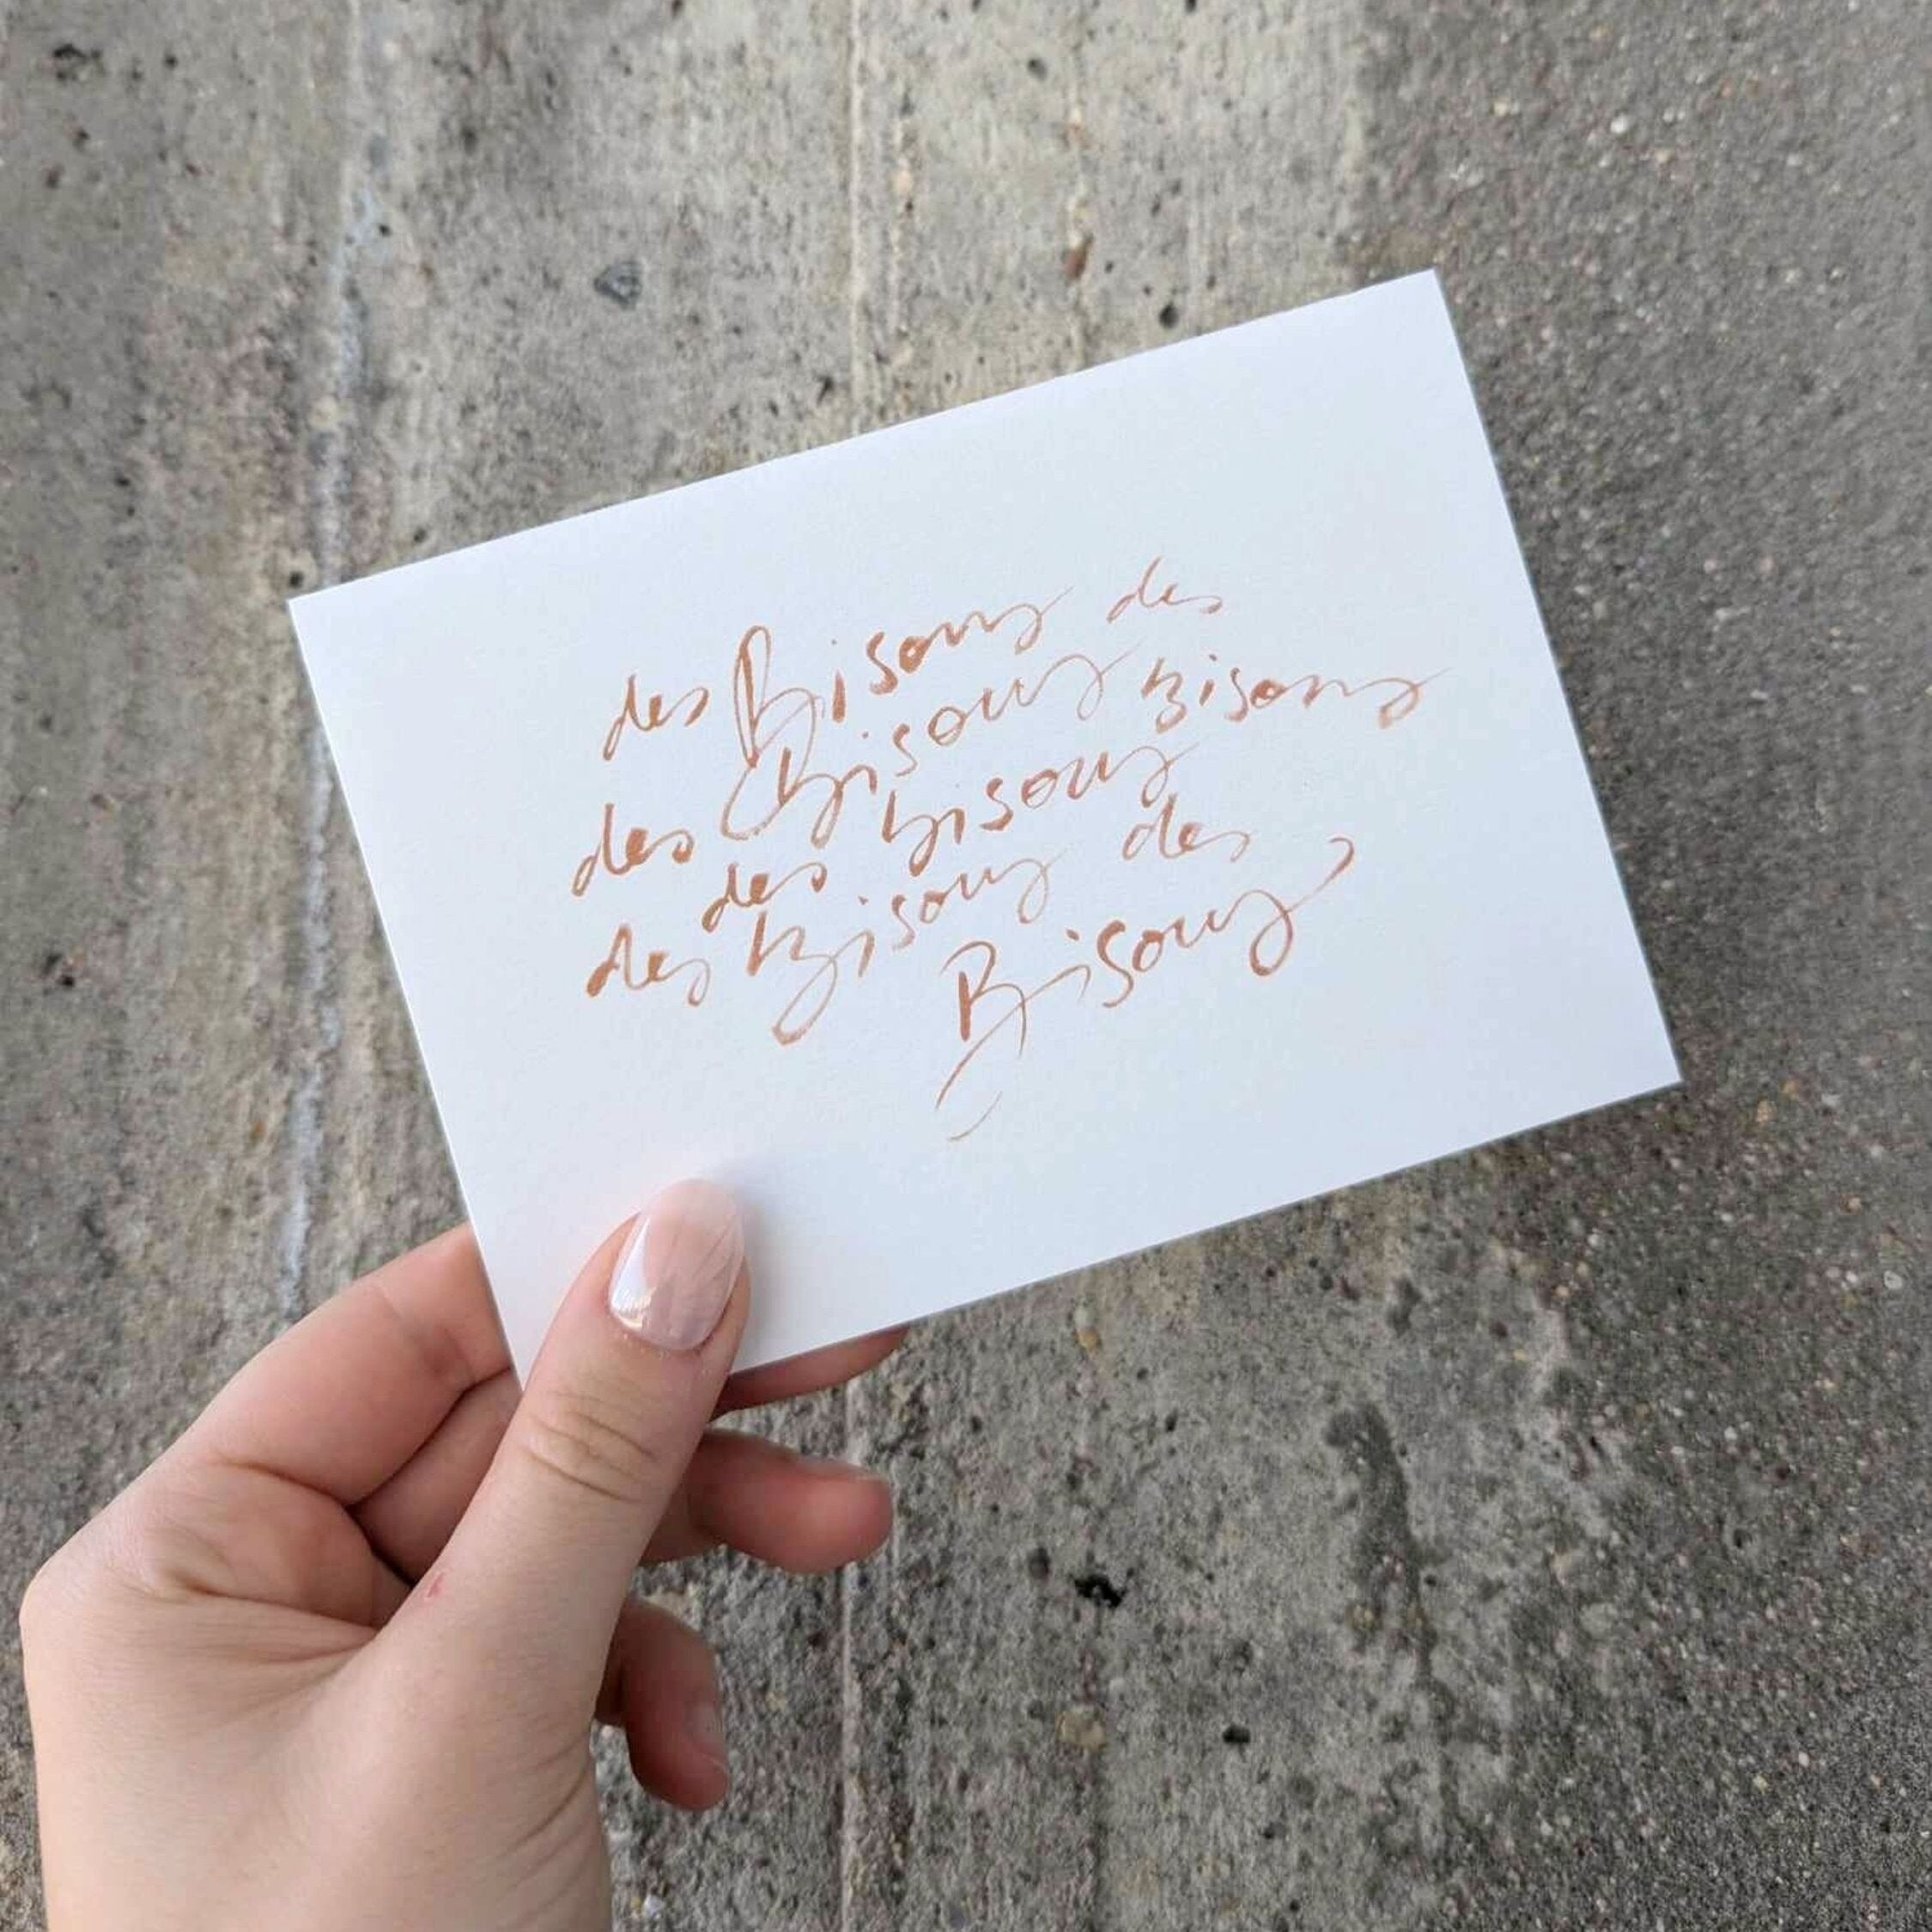 des Bisous des
des Bisous bisous
des bisous
des bisous des
Bisous